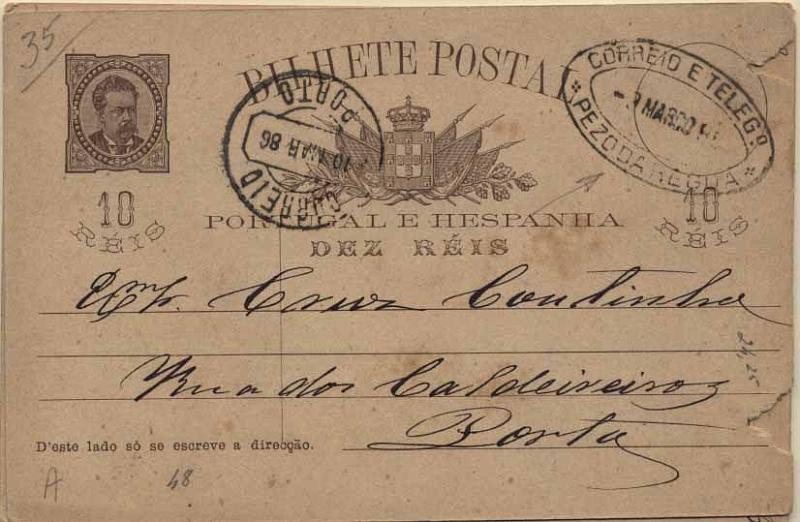 35
BILHETE POSTAL
CORREIO E TELEGº
MARÇO
PEZO DA REGUA
PORTO
10 MAR 86
CORREIO
10 RÉIS
10 RÉIS
PORTUGAL E HESPANHA
DEZ RÉIS
Cruz Coutinho
Rua dos Caldeireiros
Porto
D'este lado só se escreve a direcção.
A
48